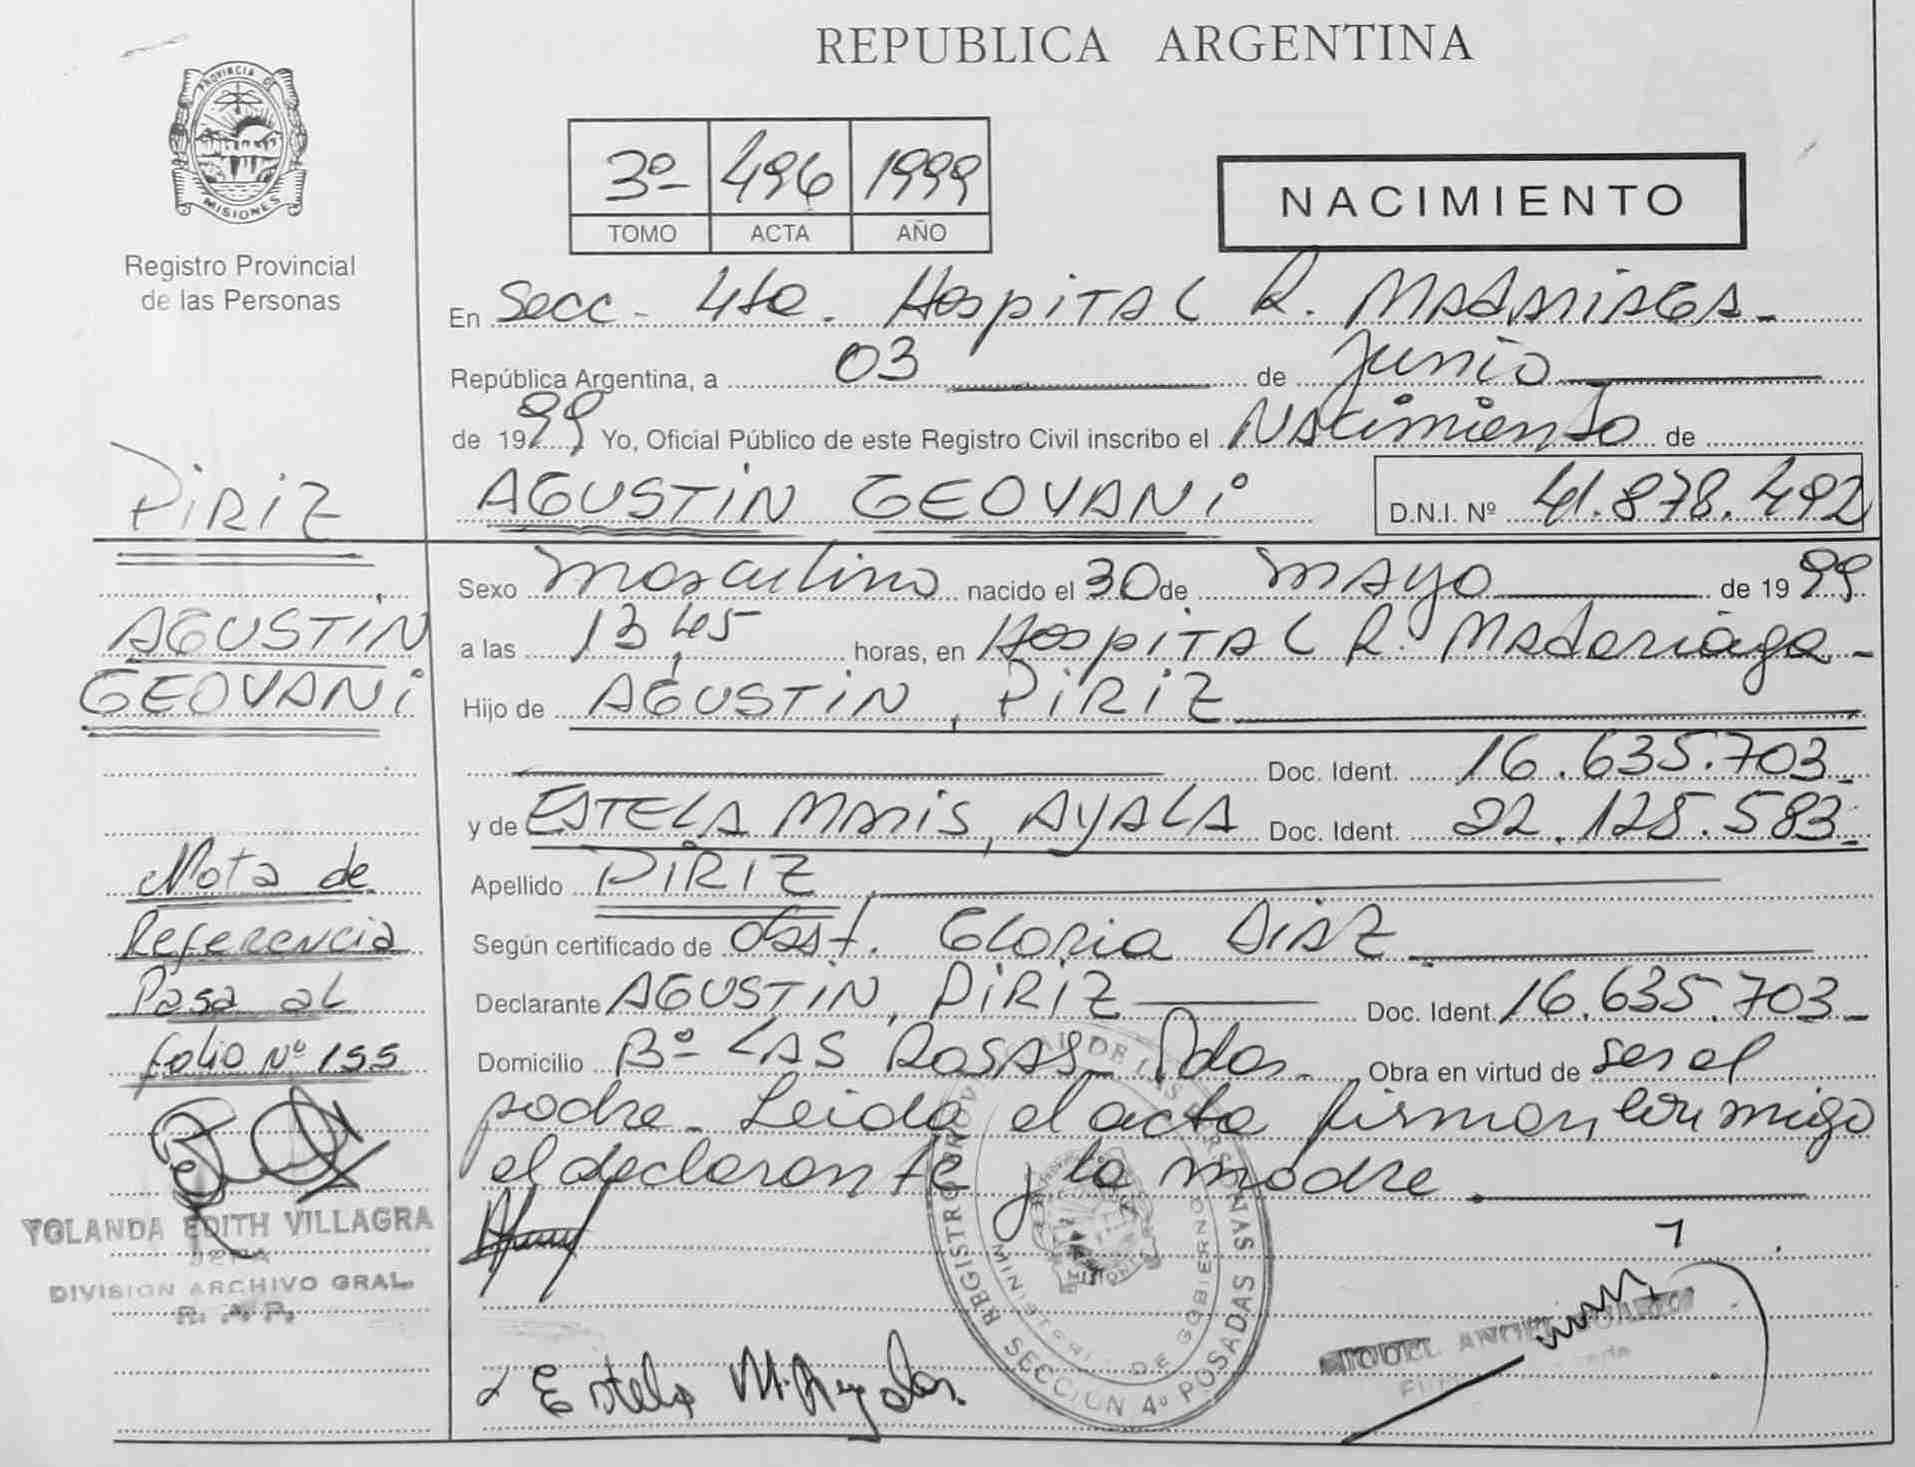 REPUBLICA ARGENTINA
PROVINCIA DE
MISIONES
Registro Provincial
de las Personas
3º 496 1999
TOMO ACTA AÑO
NACIMIENTO
En Secc - 4ta. Hospital R. Madariaga -
República Argentina, a 03 de Junio
de 1999 Yo, Oficial Público de este Registro Civil inscribo el Nacimiento de
AGUSTIN GEOVANI D.N.I. Nº 41.878.492
Sexo masculino nacido el 30 de mayo de 1999
a las 13,45 horas, en Hospital R. Madariaga -
Hijo de AGUSTIN, PIRIZ
Doc. Ident. 16.635.703 -
y de ESTELA MARIS, AYALA Doc. Ident. 22.125.583 -
Apellido PIRIZ
Según certificado de Obst. Gloria DIAZ
Declarante AGUSTIN, PIRIZ Doc. Ident. 16.635.703 -
Domicilio Bº LAS ROSAS - Pdas. Obra en virtud de ser el
padre - Leida el acta firman conmigo
el declarante y la madre
PIRIZ
AGUSTIN
GEOVANI
Nota de
Referencia
Pasa al
folio Nº 155
YOLANDA EDITH VILLAGRA
JEFA
DIVISION ARCHIVO GRAL.
Estela M.
REGISTRO PROV DE LAS PERSONAS
MINISTERIO DE GOBIERNO
SECCION 4º POSADAS
ANGEL